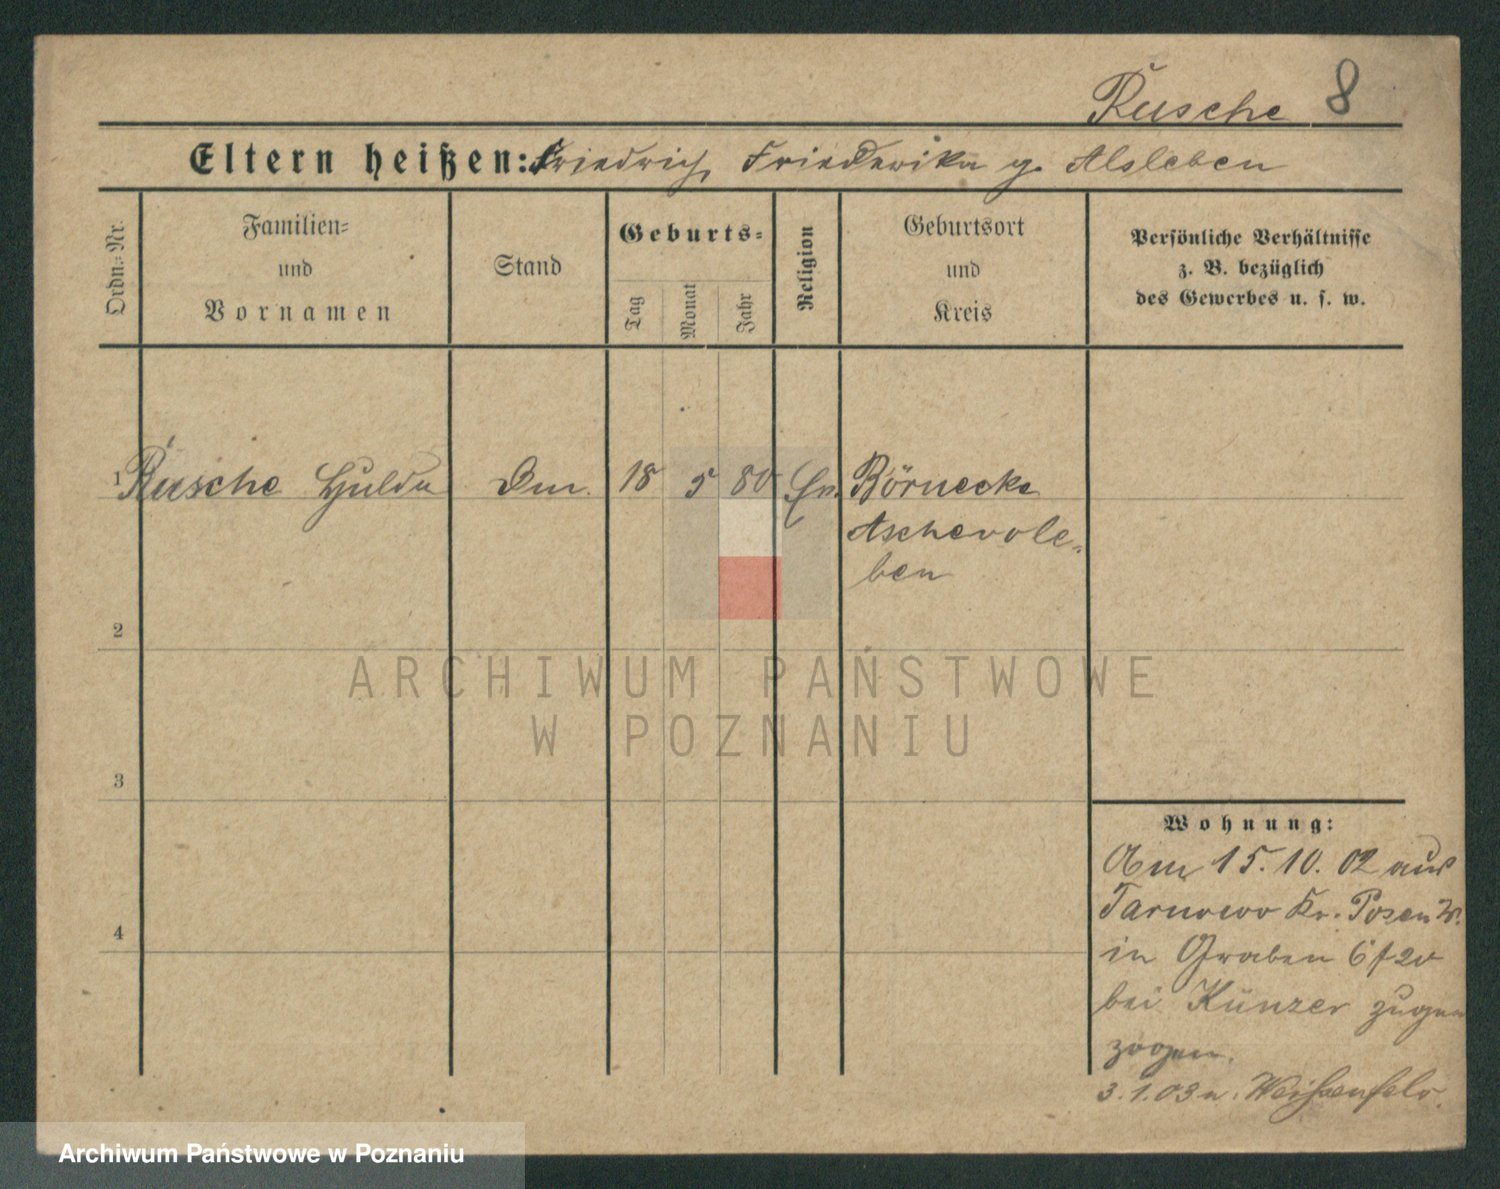 Rusche 8
Eltern heißen: Friedrich, Friederika g. Alsleben
Ordn.-Nr.
Familien-
und
Vornamen
Stand
Geburts-
Tag
Monat
Jahr
Religion
Geburtsort
und
Kreis
Persönliche Verhältnisse
z. B. bezüglich
des Gewerbes u. s. w.
1 Rusche Hulda 18 5 80 Ev. Börnecke
Aschersle-
ben
2
ARCHIWUM PAŃSTWOWE
W POZNANIU
3
Wohnung:
Am 15.10.02 aus
Tarnowo Kr. Posen W.
in Graben 6
bei Künzer
zogen.
3.1.03 n. Weißenfels.
4
Archiwum Państwowe w Poznaniu